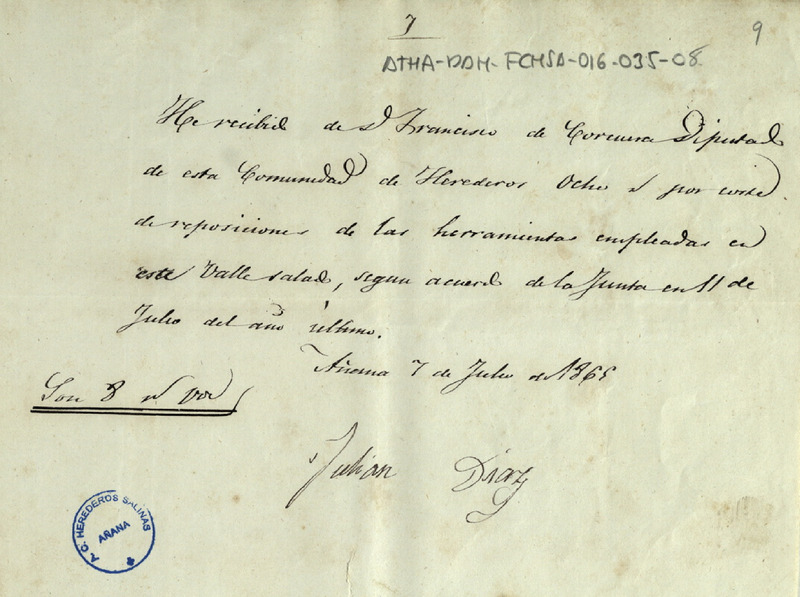 7
9
ATHA-DAH-FCHSA-016-035-08
He recibido de D Francisco de Corcuera Diputado
de esta Comunidad de Herederos Ocho r por coste
de reposiciones de las herramientas empleadas en
este Valle salado, segun acuerdo de la Junta en 11 de
Julio del año último.
Añana 7 de Julio de 1865
Son 8 r von
Julian Diaz
A.C. HEREDEROS SALINAS
AÑANA